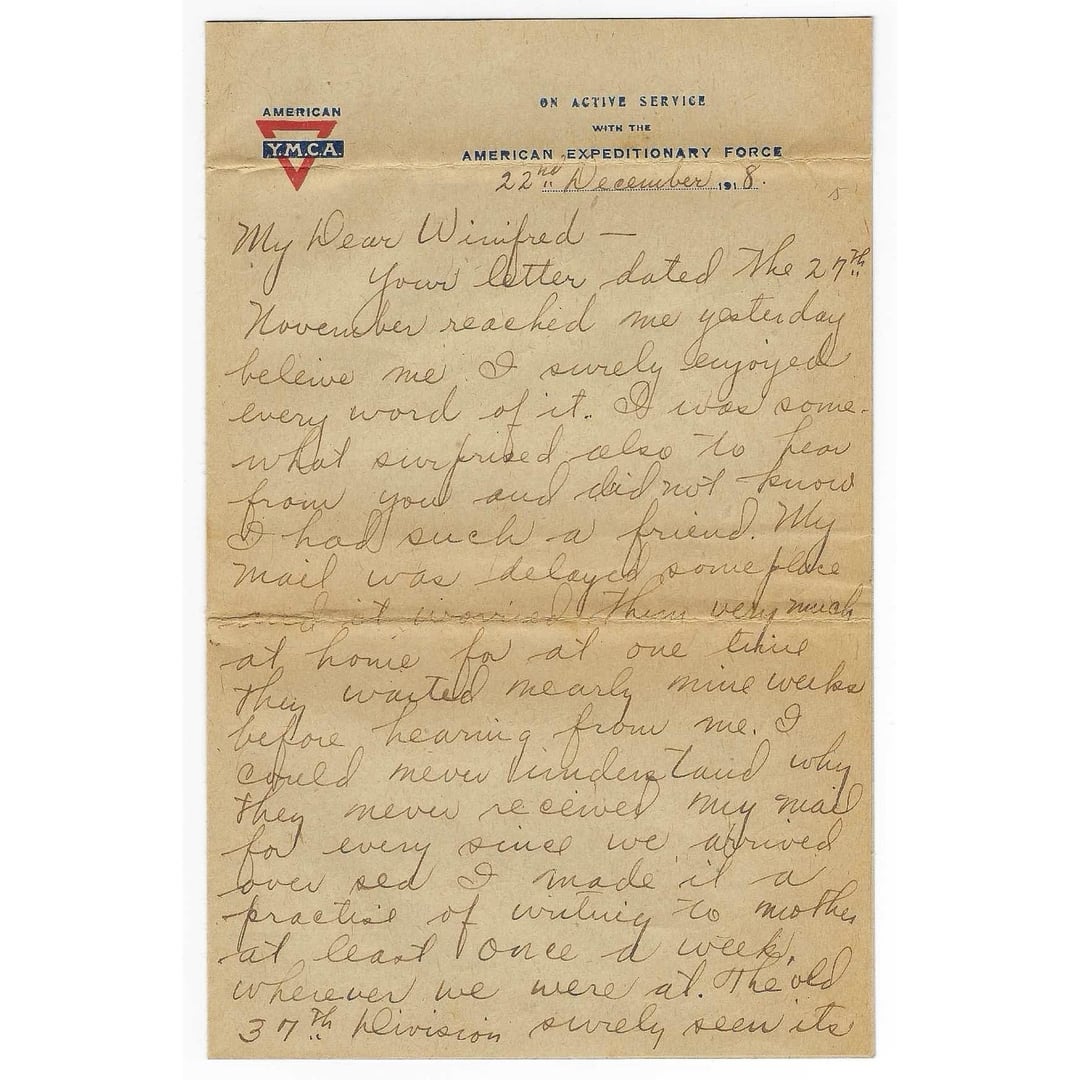 AMERICAN
Y.M.C.A.
ON ACTIVE SERVICE
WITH THE
AMERICAN EXPEDITIONARY FORCE
22nd December 1918.
My Dear Winifred —
Your letter dated the 27th
November reached me yesterday
beleive me I surely enjoyed
every word of it. I was some-
what surprised also to hear
from you and did not know
I had such a friend. My
mail was delayed someplace
and it worried them very much
at home for at one time
they waited nearly nine weeks
before hearing from me. I
could never understand why
they never received my mail
for every since we arrived
over sea I made it a
practise of writing to mother
at least once a week,
wherever we were at. The old
37th Division surely seen its